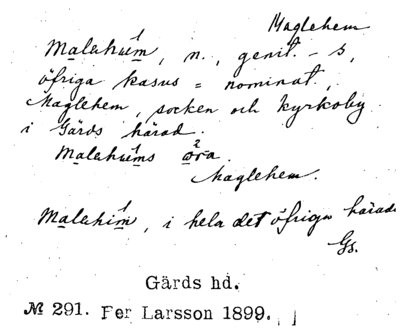 Maglehem
Malahum, n., genit. - s,
öfriga kasus = nominat.,
Maglehem, socken och kyrkoby
i Gärds härad.
Malahums öra.
Maglehem.
Malahim, i hela det öfriga härad
Gs.
Gärds hd.
№ 291. Per Larsson 1899.